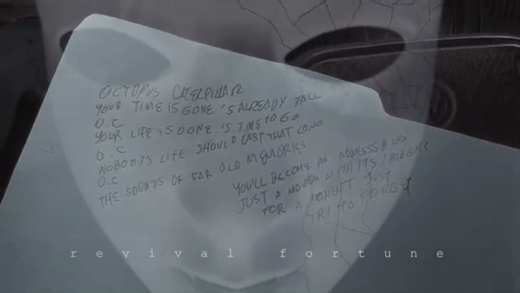 OCTOPUS CATERPILLAR
YOUR TIME IS GONE 'S ALREADY FALL
O.C.
YOUR LIFE IS DONE 'S TIME TO GO
O.C.
NOBODY'S LIFE SHOULD LAST THAT LONG
O.C.
THE SOUNDS OF FAR OLD MEMORIES
YOU'LL BECOME AN
JUST A MODEM WITH ITS THOUGHTS
FOR A MOMENT JUST
TRY TO
revival fortune